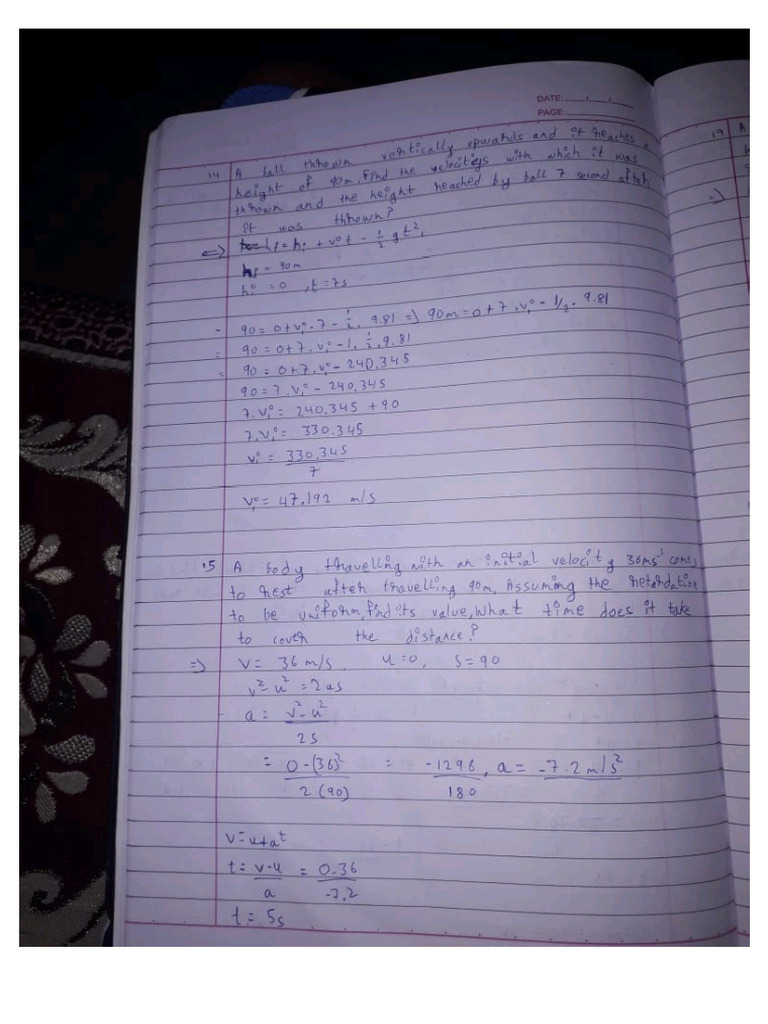 DATE: __/__/__
PAGE:
14 A ball thrown vertically upwards and it reaches a
height of 90m. Find the velocitys with which it was
thrown and the height reached by ball 7 second after
it was thrown?
=> hf = hi + vi t - 1/2 g t²,
hf = 90m
hi = 0, t = 7s
- 90 = 0 + vi . 7 - 1/2 . 9.81 => 90m = 0 + 7 . vi - 1/2 . 9.81
= 90 = 0 + 7 . vi - 1, 1/2, 9.81
= 90 = 0 + 7 . vi - 240.345
90 = 7 . vi - 240.345
7. vi = 240.345 + 90
7. vi = 330.345
vi = 330.345 / 7
vi = 47.192 m/s
15 A body travelling with an initial velocity 36ms⁻¹ comes
to rest after travelling 90m, Assuming the retardation
to be uniform, find its value, what time does it take
to cover the distance?
=> v = 36 m/s, u = 0, s = 90
v² - u² = 2as
a = v² - u² / 2s
= 0 - (36)² / 2(90) = -1296 / 180, a = -7.2 m/s²
v = u + at
t = v - u / a = 0 - 36 / -7.2
t = 5s
19 A
=>